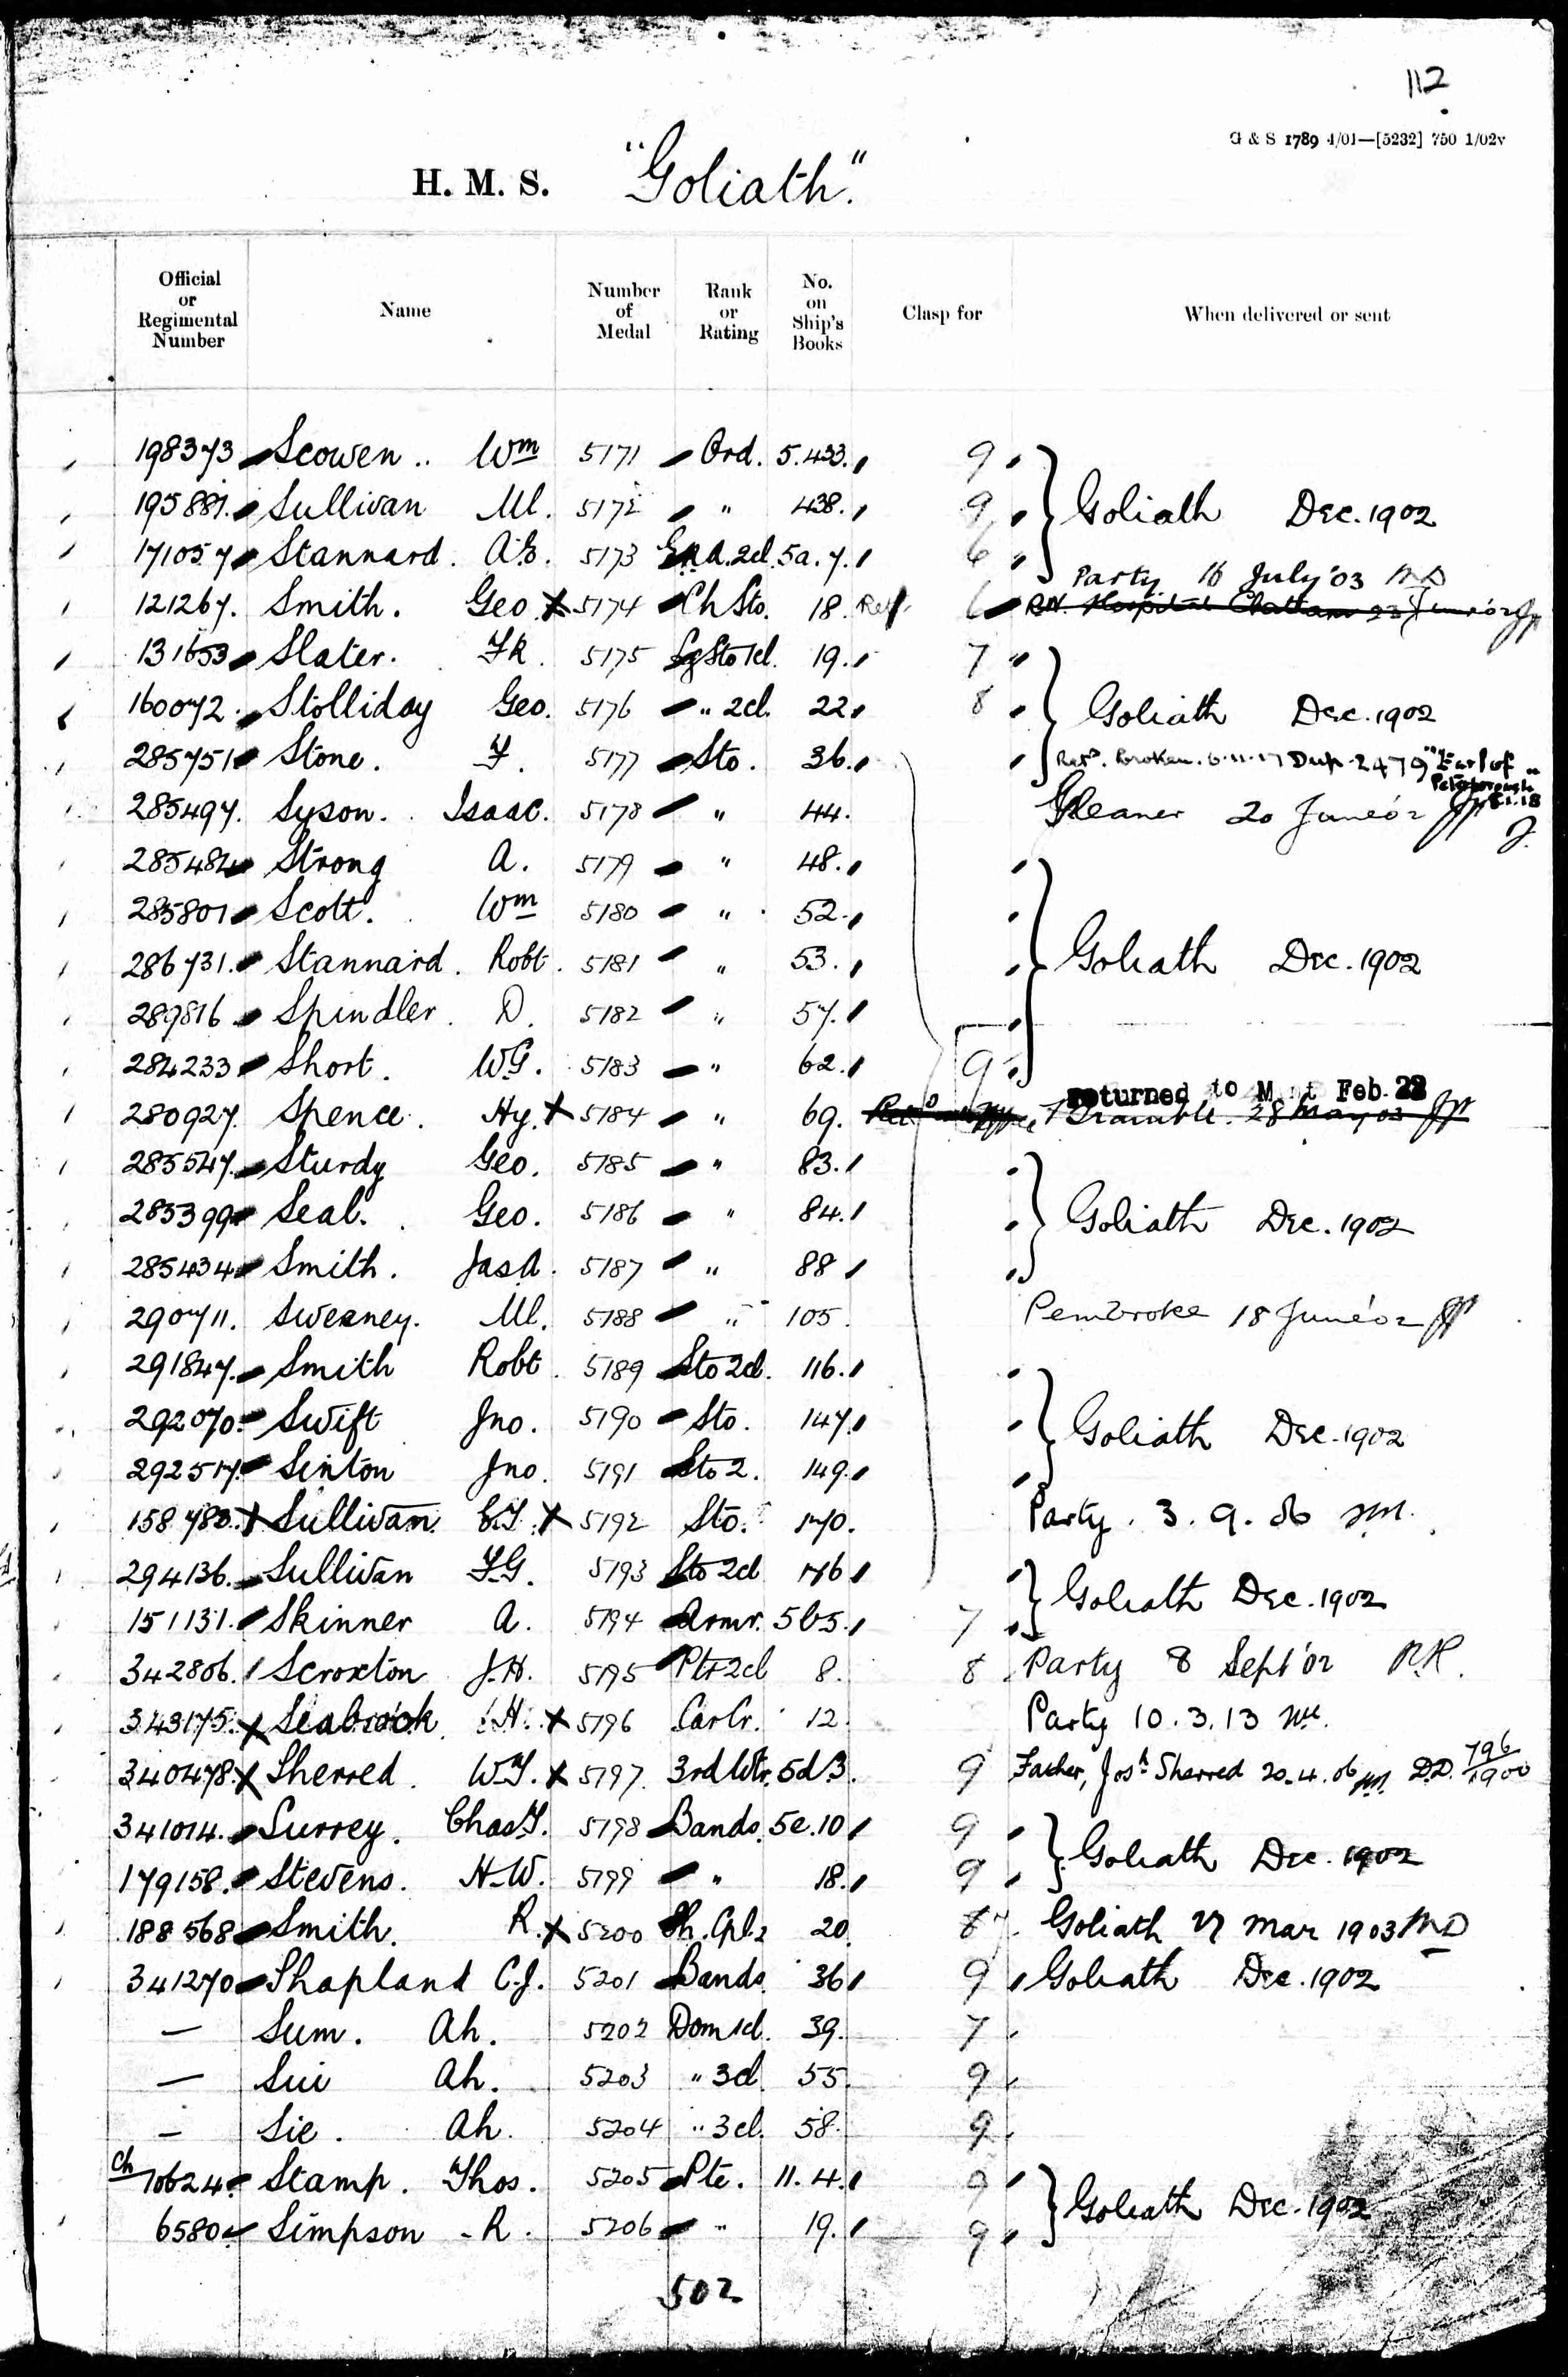 112
G & S 1789 4/01—[5232] 750 1/02v
H. M. S. "Goliath."
Official or Regimental Number Name Number of Medal Rank or Rating No. on Ship's Books Clasp for When delivered or sent
198373 Scowen .. Wm 5171 Ord. 5.433. 9
195881. Sullivan Ml. 5172 " 438. 9 Goliath Dec. 1902
171057 Stannard. A.E. 5173 2cl. 5a.7. 6
121267. Smith. Geo. X 5174 Ch Sto. 18. 6 Party 16 July '03 R.N. Hospital Chatham
131653 Slater. Fk. 5175 Lg Sto 1cl. 19. 7
160072. Stolliday Geo. 5176 " 2cl. 22. 8 Goliath Dec. 1902
285751 Stone. F. 5177 Sto. 36. Retd. broken. 6.11.17 Dup. 2479 "Earl of Peterborough" 8.1.18
285497. Syson. Isaac. 5178 " 44. Gleaner 20 June '02
285484 Strong A. 5179 " 48.
285801 Scott. Wm 5180 " 52.
286731. Stannard. Robt. 5181 " 53. Goliath Dec. 1902
289816 Spindler. D. 5182 " 57.
284233 Short. W.G. 5183 " 62. 9
280927. Spence. Hy. X 5184 " 69. returned to Mint Feb. 22 Bramble. 28 May 03
285547. Sturdy Geo. 5185 " 83.
285399 Seal. Geo. 5186 " 84. Goliath Dec. 1902
285434 Smith. Jas A. 5187 " 88
290711. Sweeney. Ml. 5188 " 105. Pembroke 18 June '02
291847. Smith Robt. 5189 Sto 2cl. 116.
292070. Swift Jno. 5190 Sto. 147. Goliath Dec. 1902
292517. Sinton Jno. 5191 Sto 2. 149.
158780. X Sullivan. X 5192 Sto. 170. Party. 3.9.06
294136. Sullivan F.G. 5193 Sto 2cl 176 Goliath Dec. 1902
151131. Skinner A. 5194 Armr. 5b5. 7
342806. Scroxton J.H. 5195 Ptr 2cl 8. 8 Party 8 Sept '02
343175. X Seabrook H. X 5196 Car Cr. 12. Party 10.3.13
340478. X Sherred. W.F. X 5197. 3rd Wtr. 5d3. 9 Father, Josh. Sherred 20.4.06 D.D. 796/1900
341014. Surrey. Chas F. 5198 Bands. 5e.10 9
179158. Stevens. H.W. 5199 " 18. 9 Goliath Dec. 1902
188568 Smith. R. X 5200 Sh. Cpl 2 20. 8 Goliath 27 Mar 1903
341270 Shapland C.J. 5201 Bands. 36 9 Goliath Dec. 1902
— Sum. Ah. 5202 Dom 1cl. 39. 7
— Sui Ah. 5203 " 3cl. 55. 9
— Sie. Ah. 5204 " 3cl. 58. 9
Ch 10624. Stamp. Thos. 5205 Pte. 11.4. 9
6580 Simpson - R. 5206 " 19. 9 Goliath Dec. 1902
502